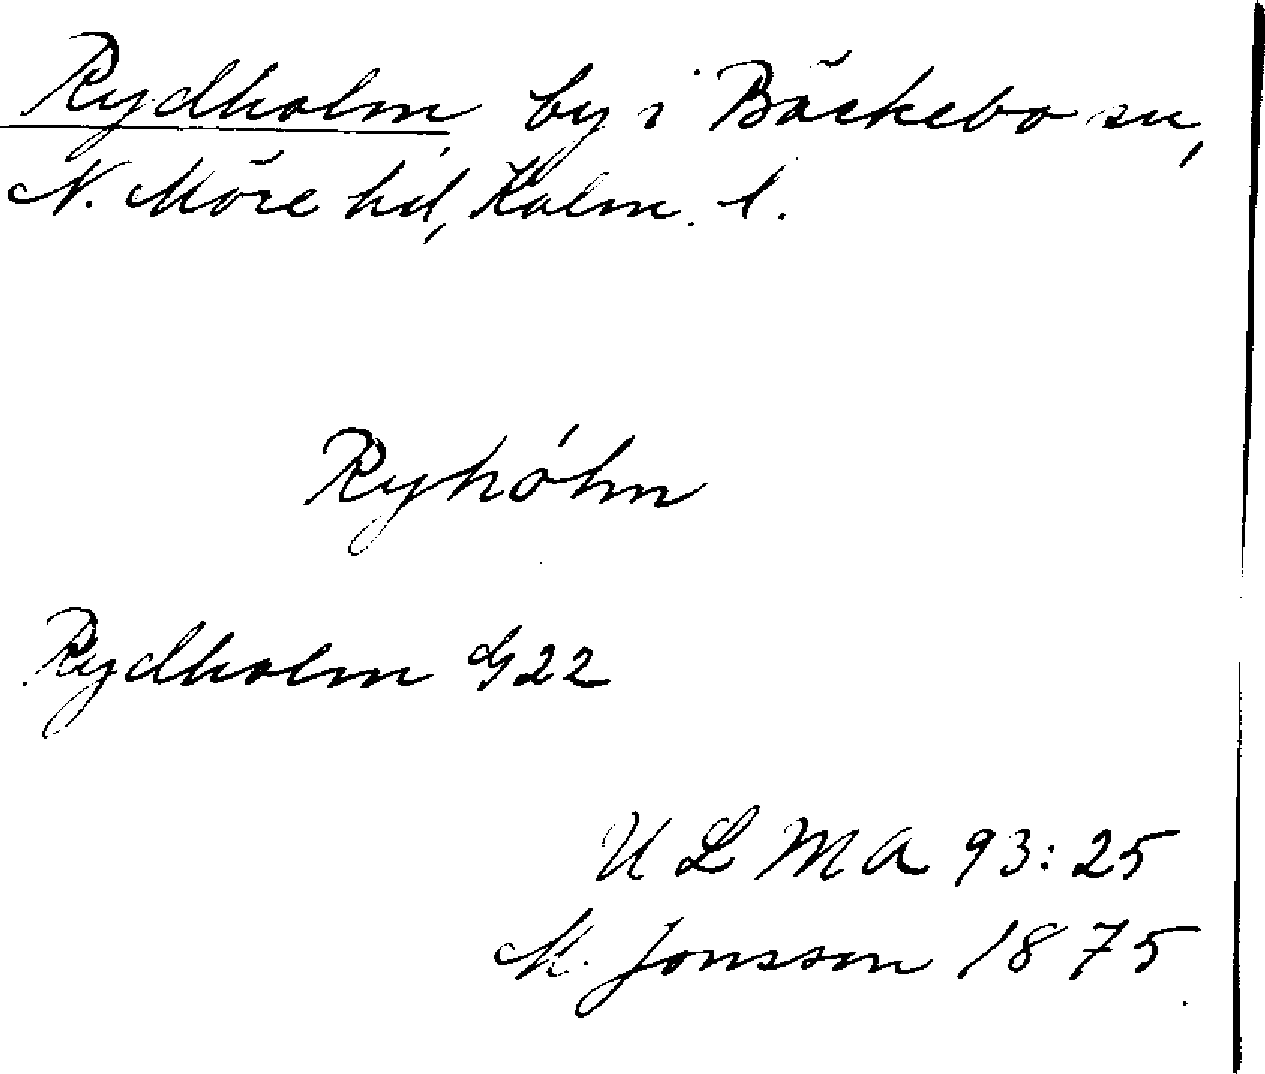 Rydholm, by i Bäckebo sn,
N. Möre hd, Kalm. l.
Ryhólm
Rydholm G22
ULMA 93:25
M. Jonsson 1875